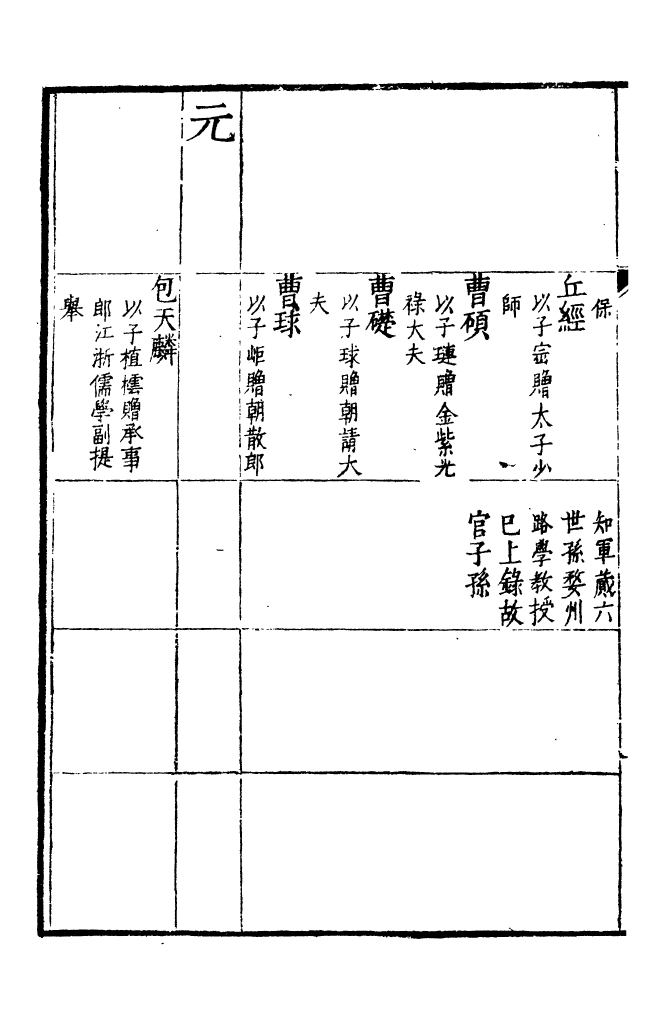 保
丘經
以子宻贈太子少
師
曹碩
以子璉贈金紫光
祿大夫
曹礎
以子球贈朝請大
夫
曹球
以子岠贈朝散郎
知軍蕆六
世孫婺州
路學教授
巳上錄故
官子孫
元
包天麟
以子植櫄贈承事
郎江浙儒學副提
舉